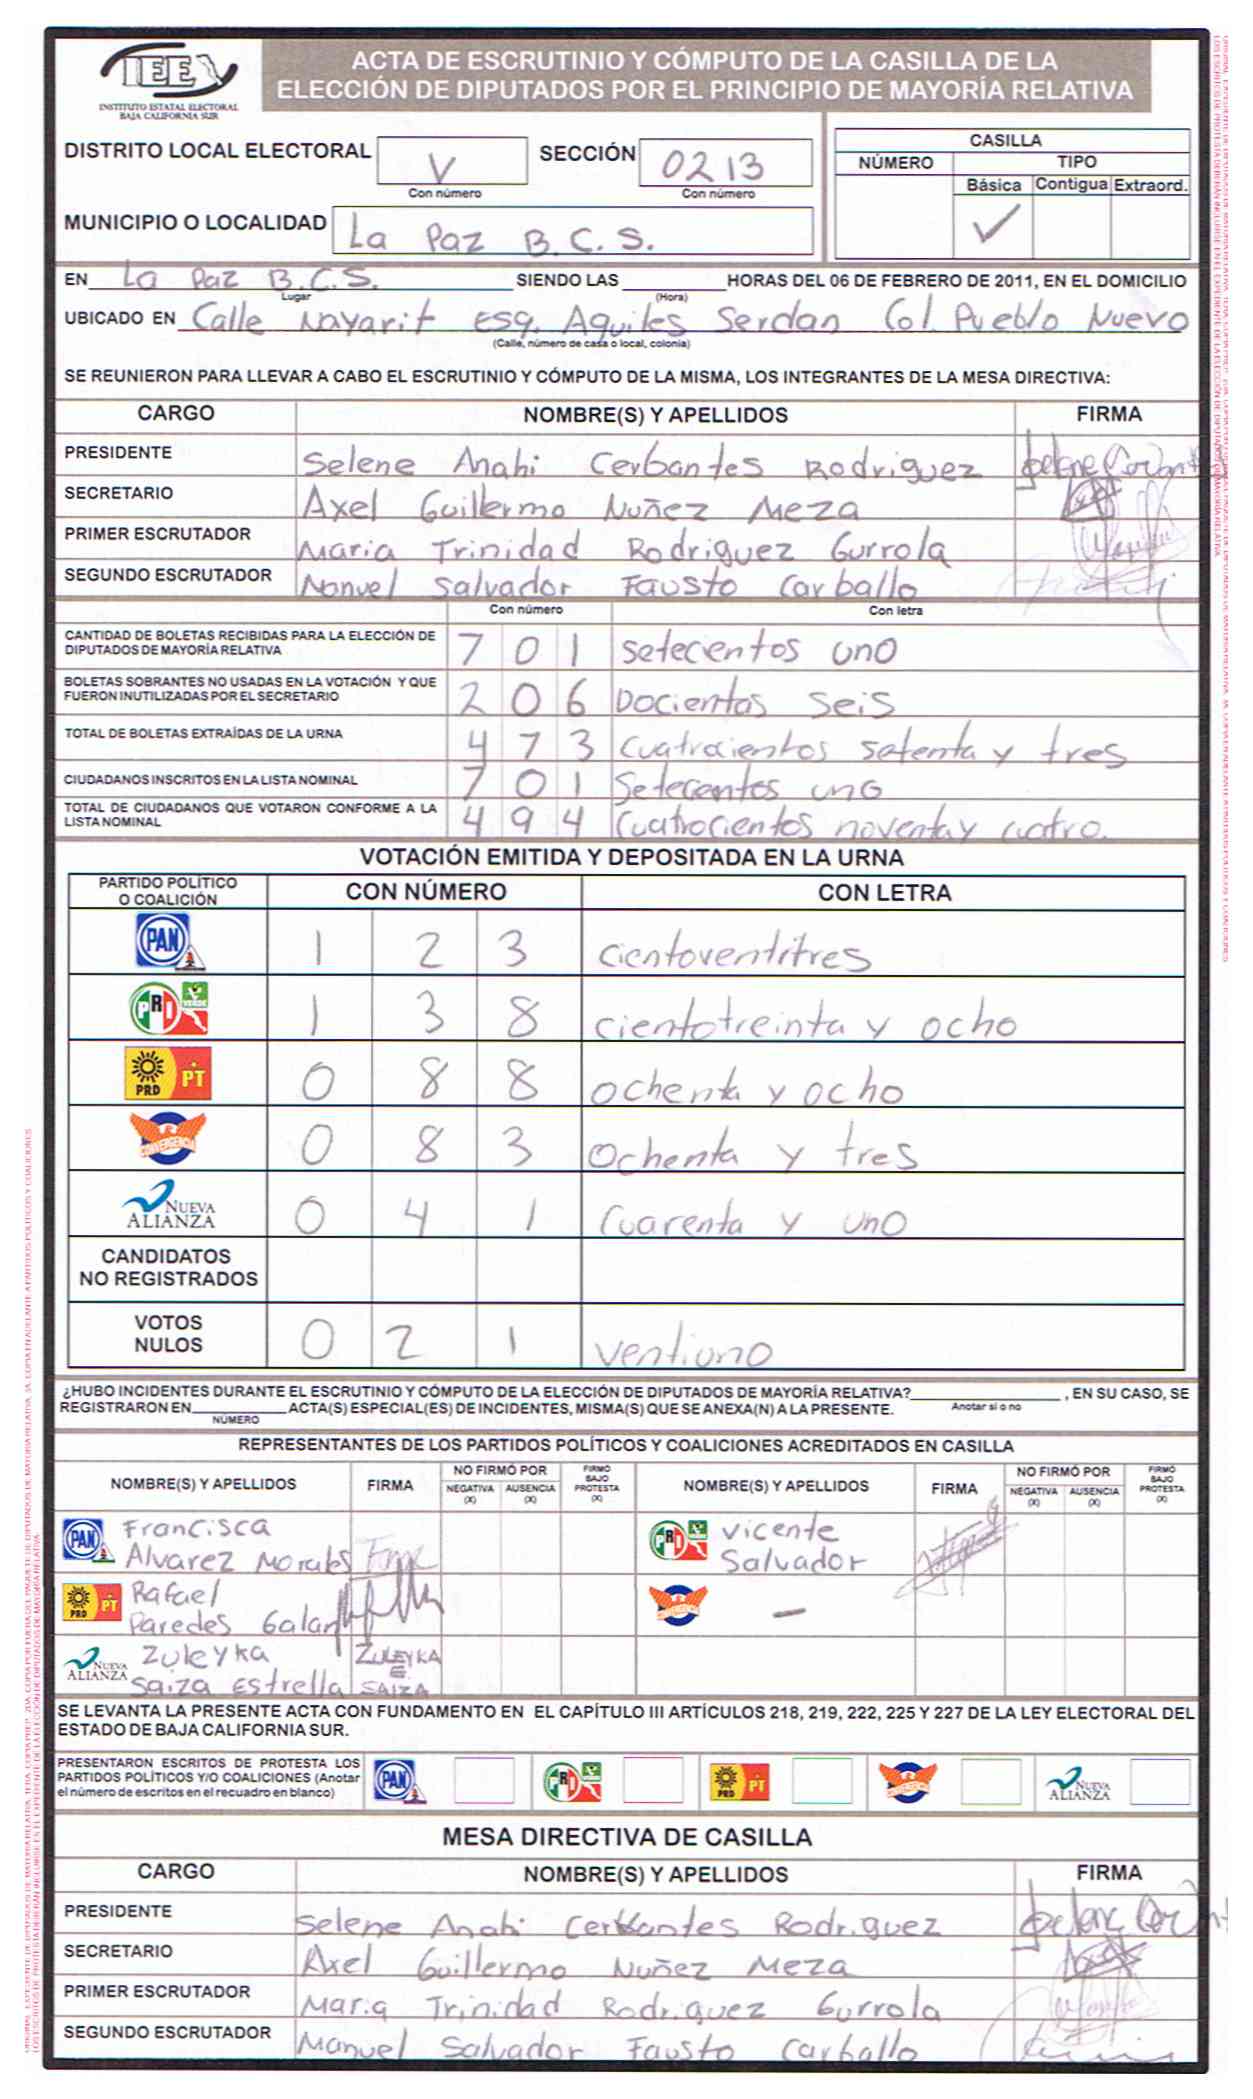 IEE
INSTITUTO ESTATAL ELECTORAL
BAJA CALIFORNIA SUR
ACTA DE ESCRUTINIO Y CÓMPUTO DE LA CASILLA DE LA
ELECCIÓN DE DIPUTADOS POR EL PRINCIPIO DE MAYORÍA RELATIVA
DISTRITO LOCAL ELECTORAL V SECCIÓN 0213
Con número Con número
MUNICIPIO O LOCALIDAD La Paz B.C.S.
CASILLA
NÚMERO TIPO
Básica Contigua Extraord.
✓
EN La Paz B.C.S. SIENDO LAS ________ HORAS DEL 06 DE FEBRERO DE 2011, EN EL DOMICILIO
Lugar (Hora)
UBICADO EN Calle Nayarit Esq. Aquiles Serdan Col. Pueblo Nuevo
(Calle, número de casa o local, colonia)
SE REUNIERON PARA LLEVAR A CABO EL ESCRUTINIO Y CÓMPUTO DE LA MISMA, LOS INTEGRANTES DE LA MESA DIRECTIVA:
CARGO NOMBRE(S) Y APELLIDOS FIRMA
PRESIDENTE Selene Anahi Cerbantes Rodriguez
SECRETARIO Axel Guillermo Nuñez Meza
PRIMER ESCRUTADOR Maria Trinidad Rodriguez Gurrola
SEGUNDO ESCRUTADOR Manuel Salvador Fausto Carballo
Con número Con letra
CANTIDAD DE BOLETAS RECIBIDAS PARA LA ELECCIÓN DE
DIPUTADOS DE MAYORÍA RELATIVA 7 0 1 setecentos uno
BOLETAS SOBRANTES NO USADAS EN LA VOTACIÓN Y QUE
FUERON INUTILIZADAS POR EL SECRETARIO 2 0 6 Docientas seis
TOTAL DE BOLETAS EXTRAÍDAS DE LA URNA 4 7 3 cuatrocientos setenta y tres
CIUDADANOS INSCRITOS EN LA LISTA NOMINAL 7 0 1 Setecentos uno
TOTAL DE CIUDADANOS QUE VOTARON CONFORME A LA
LISTA NOMINAL 4 9 4 cuatrocientos noventa y cuatro.
VOTACIÓN EMITIDA Y DEPOSITADA EN LA URNA
PARTIDO POLÍTICO
O COALICIÓN CON NÚMERO CON LETRA
PAN 1 2 3 cientoventitres
PRI VERDE 1 3 8 cientotreinta y ocho
PRD PT 0 8 8 ochenta y ocho
CONVERGENCIA 0 8 3 Ochenta y tres
NUEVA ALIANZA 0 4 1 Cuarenta y uno
CANDIDATOS
NO REGISTRADOS
VOTOS
NULOS 0 2 1 ventiuno
¿HUBO INCIDENTES DURANTE EL ESCRUTINIO Y CÓMPUTO DE LA ELECCIÓN DE DIPUTADOS DE MAYORÍA RELATIVA? ________ , EN SU CASO, SE
REGISTRARON EN ________ ACTA(S) ESPECIAL(ES) DE INCIDENTES, MISMA(S) QUE SE ANEXA(N) A LA PRESENTE. Anotar si o no
NÚMERO
REPRESENTANTES DE LOS PARTIDOS POLÍTICOS Y COALICIONES ACREDITADOS EN CASILLA
NOMBRE(S) Y APELLIDOS FIRMA NO FIRMÓ POR NEGATIVA (X) AUSENCIA (X) FIRMÓ BAJO PROTESTA (X) NOMBRE(S) Y APELLIDOS FIRMA NO FIRMÓ POR NEGATIVA (X) AUSENCIA (X) FIRMÓ BAJO PROTESTA (X)
PAN Francisca PRI VERDE Vicente
Alvarez Morales Salvador
PRD PT Rafael CONVERGENCIA —
Paredes Galan
NUEVA ALIANZA Zuleyka ZULEYKA
Saiza Estrella E. SAIZA
SE LEVANTA LA PRESENTE ACTA CON FUNDAMENTO EN EL CAPÍTULO III ARTÍCULOS 218, 219, 222, 225 Y 227 DE LA LEY ELECTORAL DEL
ESTADO DE BAJA CALIFORNIA SUR.
PRESENTARON ESCRITOS DE PROTESTA LOS
PARTIDOS POLÍTICOS Y/O COALICIONES (Anotar
el número de escritos en el recuadro en blanco) PAN PRI VERDE PRD PT CONVERGENCIA NUEVA ALIANZA
MESA DIRECTIVA DE CASILLA
CARGO NOMBRE(S) Y APELLIDOS FIRMA
PRESIDENTE Selene Anahi Cerbantes Rodriguez
SECRETARIO Axel Guillermo Nuñez Meza
PRIMER ESCRUTADOR Maria Trinidad Rodriguez Gurrola
SEGUNDO ESCRUTADOR Manuel Salvador Fausto Carballo